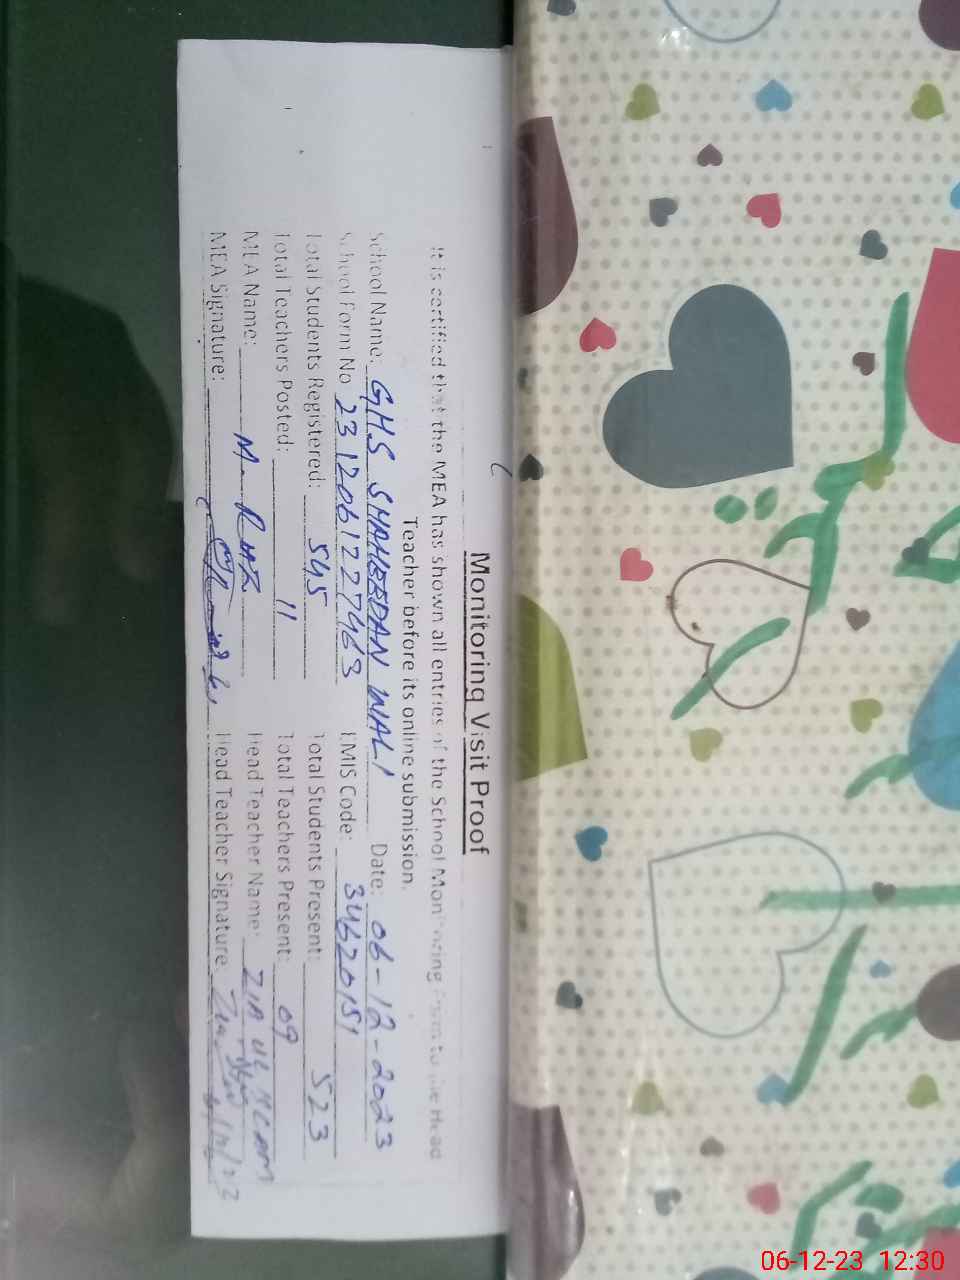 Monitoring Visit Proof
It is certified that the MEA has shown all entries of the School Monitoring Form to the Head
Teacher before its online submission.
School Name: GHS SHAHEEDAN WALI Date: 06-12-2023
School Form No 2312061227463 EMIS Code: 34620151
Total Students Registered: 545 Total Students Present: 523
Total Teachers Posted: 11 Total Teachers Present: 09
MEA Name: M. RIAZ Head Teacher Name: ZIA UL
MEA Signature: Head Teacher Signature:
06-12-23 12:30